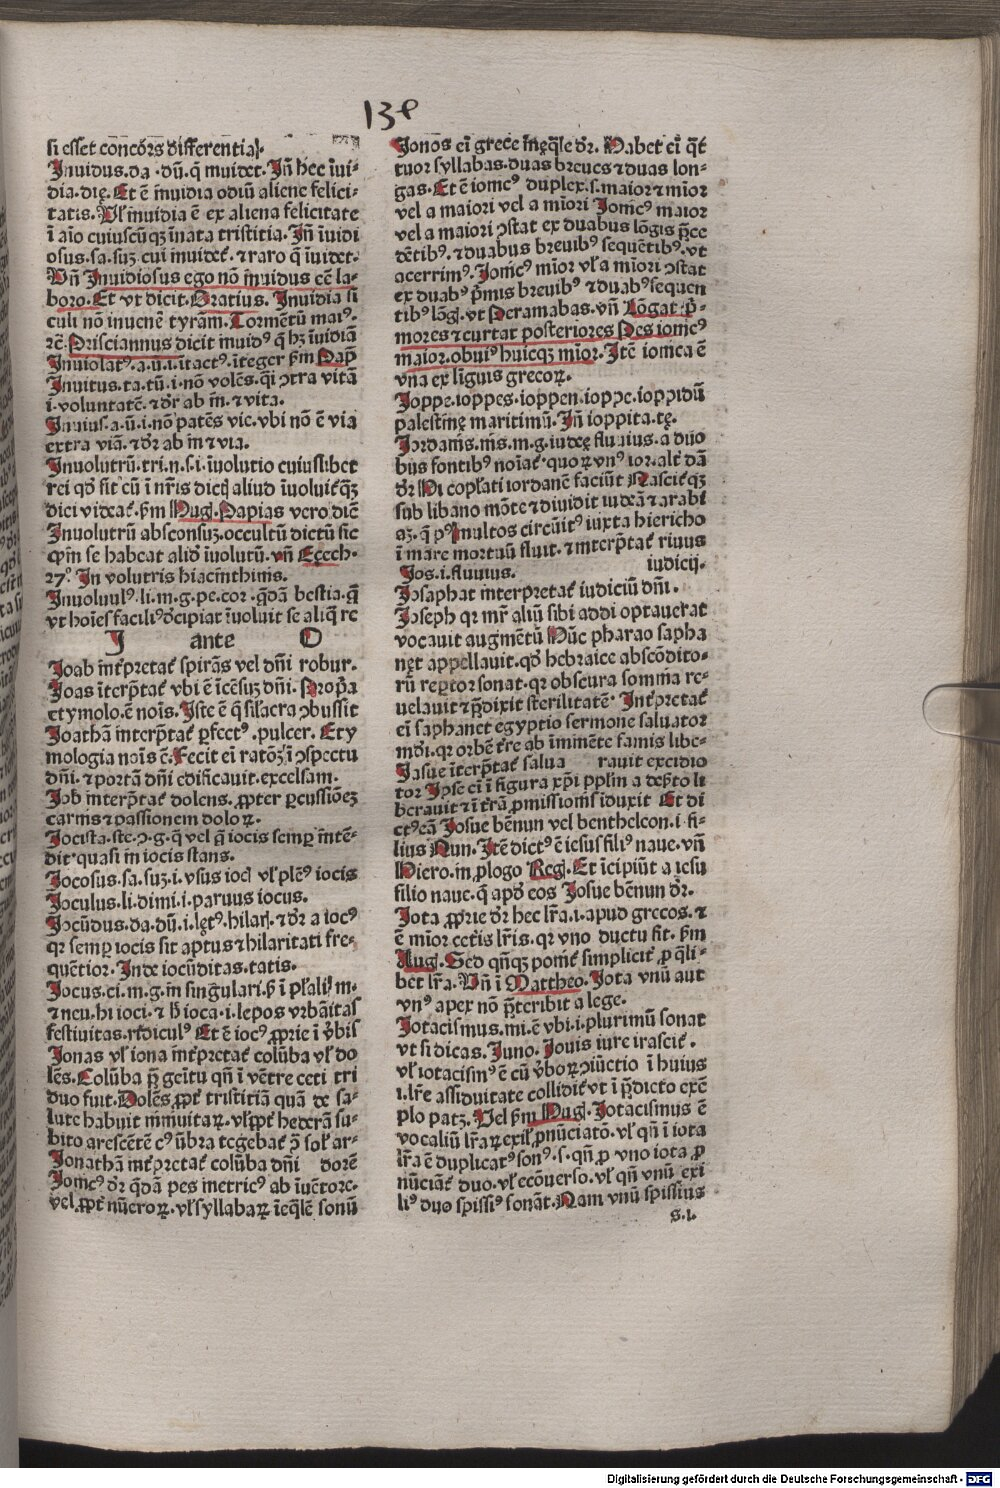 139
si esset concors differentiaꝝ.
Inuidus.da.dū.q̄ inuidet. Iñ hec īui-
dia.dię. Et ē inuidia odiū aliene felici-
tatis. Uł inuidia ē ex aliena felicitate
ī aīo cuiuscūqꝫ īnata tristitia. Iñ īuidi
osus.sa.suꝫ.cui inuidet̄. ⁊ raro q̄ īuidet.
Uñ Inuidiosus ego nō inuidus eē la-
boro. Et vt dicit. Oratius. Inuidia si
culi nō inuenē tyrāni. Tormētū maiꝰ.
rē. Priscianus dicit inuidꝰ q̄ hꝫ īuidiā
Inuiolatꝰ.a.ū.i.ītactꝰ.īteger ẜm Pap̄
Inuitus.ta.tū.i.nō volēs.q̄i ↄtra vitā
i.voluntatē. ⁊ dr̄ ab in. ⁊ vita.
Inuius.a.ū.i.nō patēs vie.vbi nō ē via
extra viā. ⁊ dr̄ ab in ⁊ via.
Inuolutrū.tri.n.s.i.īuolutio cuiuslibet
rei qd̄ fit cū ī nr̄is dictꝭ aliud īuoluit̄qꝫ
dici videat̄. ẜm Hug. Papias vero diē
Inuolutrū absconsuꝫ.occultū dictū sic
ꝙ in se habeat aliqd̄ īuolutū. vñ Eꝫech.
27.° In volutris hiacinthinis.
Inuoluulꝰ.li.m.g.pe.cor.q̄dā bestia.q̄
vt hoīes faciliꝰ decipiat īuoluit se aliq̄ re
I ante O
Ioab īnt̄pretat̄ spirās vel dn̄i robur.
Ioas īterp̄tat̄ vbi ē īcēsuꝫ dn̄i. Prop̄a
etymolo.ē noīs. Iste ē q̄ sīlacra ↄbussit
Ioathā interp̄tat̄ ꝑfectꝰ.pulcer. Ety
mologia noīs ē. Fecit ei ratōꝫ ī ↄspectu
dn̄i. ⁊ portā dn̄i edificauit.excelsam.
Iob interp̄tat̄ dolens. ꝓpter ꝑcussiōeꝫ
carnis ⁊ passionem doloꝝ.
Iocista.ste.ↄ.g.q̄ vel q̄ iocis semꝑ intē-
dit.quasi in iocis stans.
Iocosus.sa.suꝫ.i.vsus ioci vł plēꝰ iocis
Ioculus.li.dimi.i.paruus iocus.
Iocūdus.da.dū.i.lętꝰ.hilarꝭ. ⁊ dr̄ a iocꝰ
qr semꝑ iocis sit aptus ⁊ hilaritati fre-
quētior. Inde iocūditas.tatis.
Iocus.ci.m.g.in singulari.ẜ ī pl̄ali m.
⁊ neu.hi ioci. ⁊ h̄ ioca.i.lepos vrbāitas
festiuitas.ridiculꝰ Et ē iocꝰ ꝓprie ī v̄bis
Ionas vł iona int̄pretat̄ colūba vł do
lēs. Colūba ꝓp̄ gēitu qn̄ ī vētre ceti tri
duo fuit. Dolēs ꝓpt̄ tristitiā quā de sa-
lute habuit niniuitaꝝ. vł ꝓpt̄ hederā su-
bito arescētē cꝰ ūbra tegebat̄ ↄ̄ sol̄ ar-
Ionathā int̄pretat̄ colūba dn̄i dorē
Ionicꝰ dr̄ q̄dā pes metricꝰ ab īuētore.
vel ꝓpt̄ nūeroꝝ.vł syllabaꝝ īeq̄lē sonū
Ionos ei grece ineq̄le dr̄. Habet ei q̄t
tuor syllabas.duas breues ⁊ duas lon-
gas. Et ē ionicꝰ duplex.s.maior ⁊ mīor
vel a maiori vel a mīori Ionicꝰ maior
vel a maiori ↄstat ex duabus lōgis p̄ce
dētibꝰ. ⁊ duabus breuibꝰ sequētibꝰ.vt
acerrimꝰ. Ionicꝰ mīor vł a mīori ↄstat
ex duabꝰ p̄mis breuibꝰ ⁊ duabꝰ sequen
tibꝰ lōgꝭ.vt Peramabas.vñ Lōgat p̄-
mores ⁊ curtat posteriores Pes ionicꝰ
maior.obuiꝰ huicqꝫ mīor. Itē ionica ē
vna ex līguis grecoꝝ.
Ioppe.ioppes.ioppen.ioppe.ioppidū
palestinę maritimū. Iñ ioppita.tę.
Iordanis.nis.m.g.iudeę fluuius.a duo
bus fontibꝰ noīat̄.quoꝝ vnꝰ ior.alt̄ dā
dr̄ Hi copl̄ati iordanē faciūt Nascit̄qꝫ
sub libano mōte ⁊ diuidit iudeā ⁊ arabi
aꝫ.q̄ ꝑ multos circūitꝰ iuxta hiericho
ī mare mortuū fluit. ⁊ interp̄tat̄ riuus
Ios.i.fluuius. iudicij.
Iosaphat interpretat̄ iudiciū dn̄i.
Ioseph qr mr̄ aliū sibi addi optauerat
vocauit augmētū Hūc pharao sapha
nęt appellauit.qd̄ hebraice abscōdito-
rū reptor sonat.qr obscura somnia re-
uelauit ⁊ p̄dixit sterilitatē. Int̄pretat̄
ei saphanet egyptio sermone saluator
mūdi.qr orbē t̄re ab īminēte famis libe-
Iosue īterp̄tat̄ salua rauit excidio
tor Ipse ei ī figura xp̄i ppl̄m a dep̄to li
berauit ⁊ ī t̄rā ꝓmissionis īduxit Et di
ctꝰ eā Iosue bēnun vel benthelcon.i.fi-
lius Nun. Itē dictꝰ ē iesus filiꝰ naue.vñ
Hiero.in ꝓlogo Regꝭ. Et īcipiūt a iesu
filio naue.q̄ apd̄ eos Iosue bēnun dr̄.
Iota ꝓprie dr̄ hec lr̄a.i.apud grecos. ⁊
ē mīor ceteris lr̄is.qr vno ductu fit. ẜm
Aug. Sed qn̄qꝫ ponit̄ simplicit̄ ꝓ q̄li-
bet lr̄a. Uñ ī Mattheo. Iota vnū aut
vnꝰ apex nō p̄teribit a lege.
Iotacismus.mi.ē vbi.i.plurimū sonat
vt si dicas. Iuno. Iouis iure irascit̄.
vł iotacismꝰ ē cū v̄boꝝ ↄiūctio ī huius
i.lr̄e assiduitate collidit̄ vt ī p̄dicto exē
plo patꝫ. Uel ẜm Hug. Iotacismus ē
vocaliū lr̄aꝝ exil̄ ꝓnūciatō.vł qn̄ ī iota
lr̄a ē duplicatꝰ sonꝰ.s.qn̄ ꝓ vno iota ꝓ
nūciat̄ duo.vł ecōuerso.vł qn̄ vnū exi
liꝰ duo spissiꝰ sonāt. Nam vnū spissius
s.i.
Digitalisierung gefördert durch die Deutsche Forschungsgemeinschaft - DFG